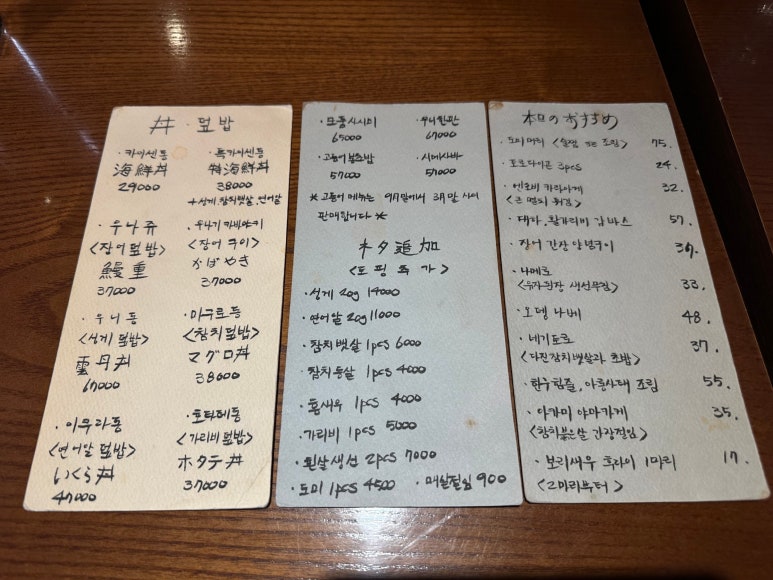 丼 · 덮밥
· 카이센동
海鮮丼
29000
· 특카이센동
特海鮮丼
38000
+성게.참치뱃살.연어알
· 우나쥬
<장어덮밥>
鰻重
37000
· 우나기카바야키
<장어구이>
かばやき
37000
· 우니동
<성게덮밥>
雲丹丼
67000
· 마구로동
<참치덮밥>
マグロ丼
38000
· 이쿠라동
<연어알덮밥>
いくら丼
47000
· 호타테동
<가리비덮밥>
ホタテ丼
37000
· 모둠사시미
65000
· 우니한판
67000
· 고등어봉초밥
57000
· 시메사바
57000
* 고등어 메뉴는 9월말에서 3월말 사이
판매합니다 *
ネタ追加
<토핑추가>
· 성게 20g 14000
· 연어알 20g 11000
· 참치뱃살 1pcs 6000
· 참치등살 1pcs 4000
· 홍새우 1pcs 4000
· 가리비 1pcs 5000
· 흰살생선 2pcs 7000
· 도미 1pcs 4500
· 매실절임 900
本日のおすすめ
· 도미머리 <술찜 or 조림> 75.
24.
32.
<큰 멸치 튀김>
· 대자. 활가리비 감바스 57.
· 장어 간장 양념구이
· 나메로
33.
· 오뎅나베 48.
· 네기토로 37.
<다진참치뱃살과 초밥>
· 한우힘줄, 아롱사태 조림 55.
35.
<참치붉은살 간장절임>
· 보리새우 후라이 1마리 17.
<2마리부터>